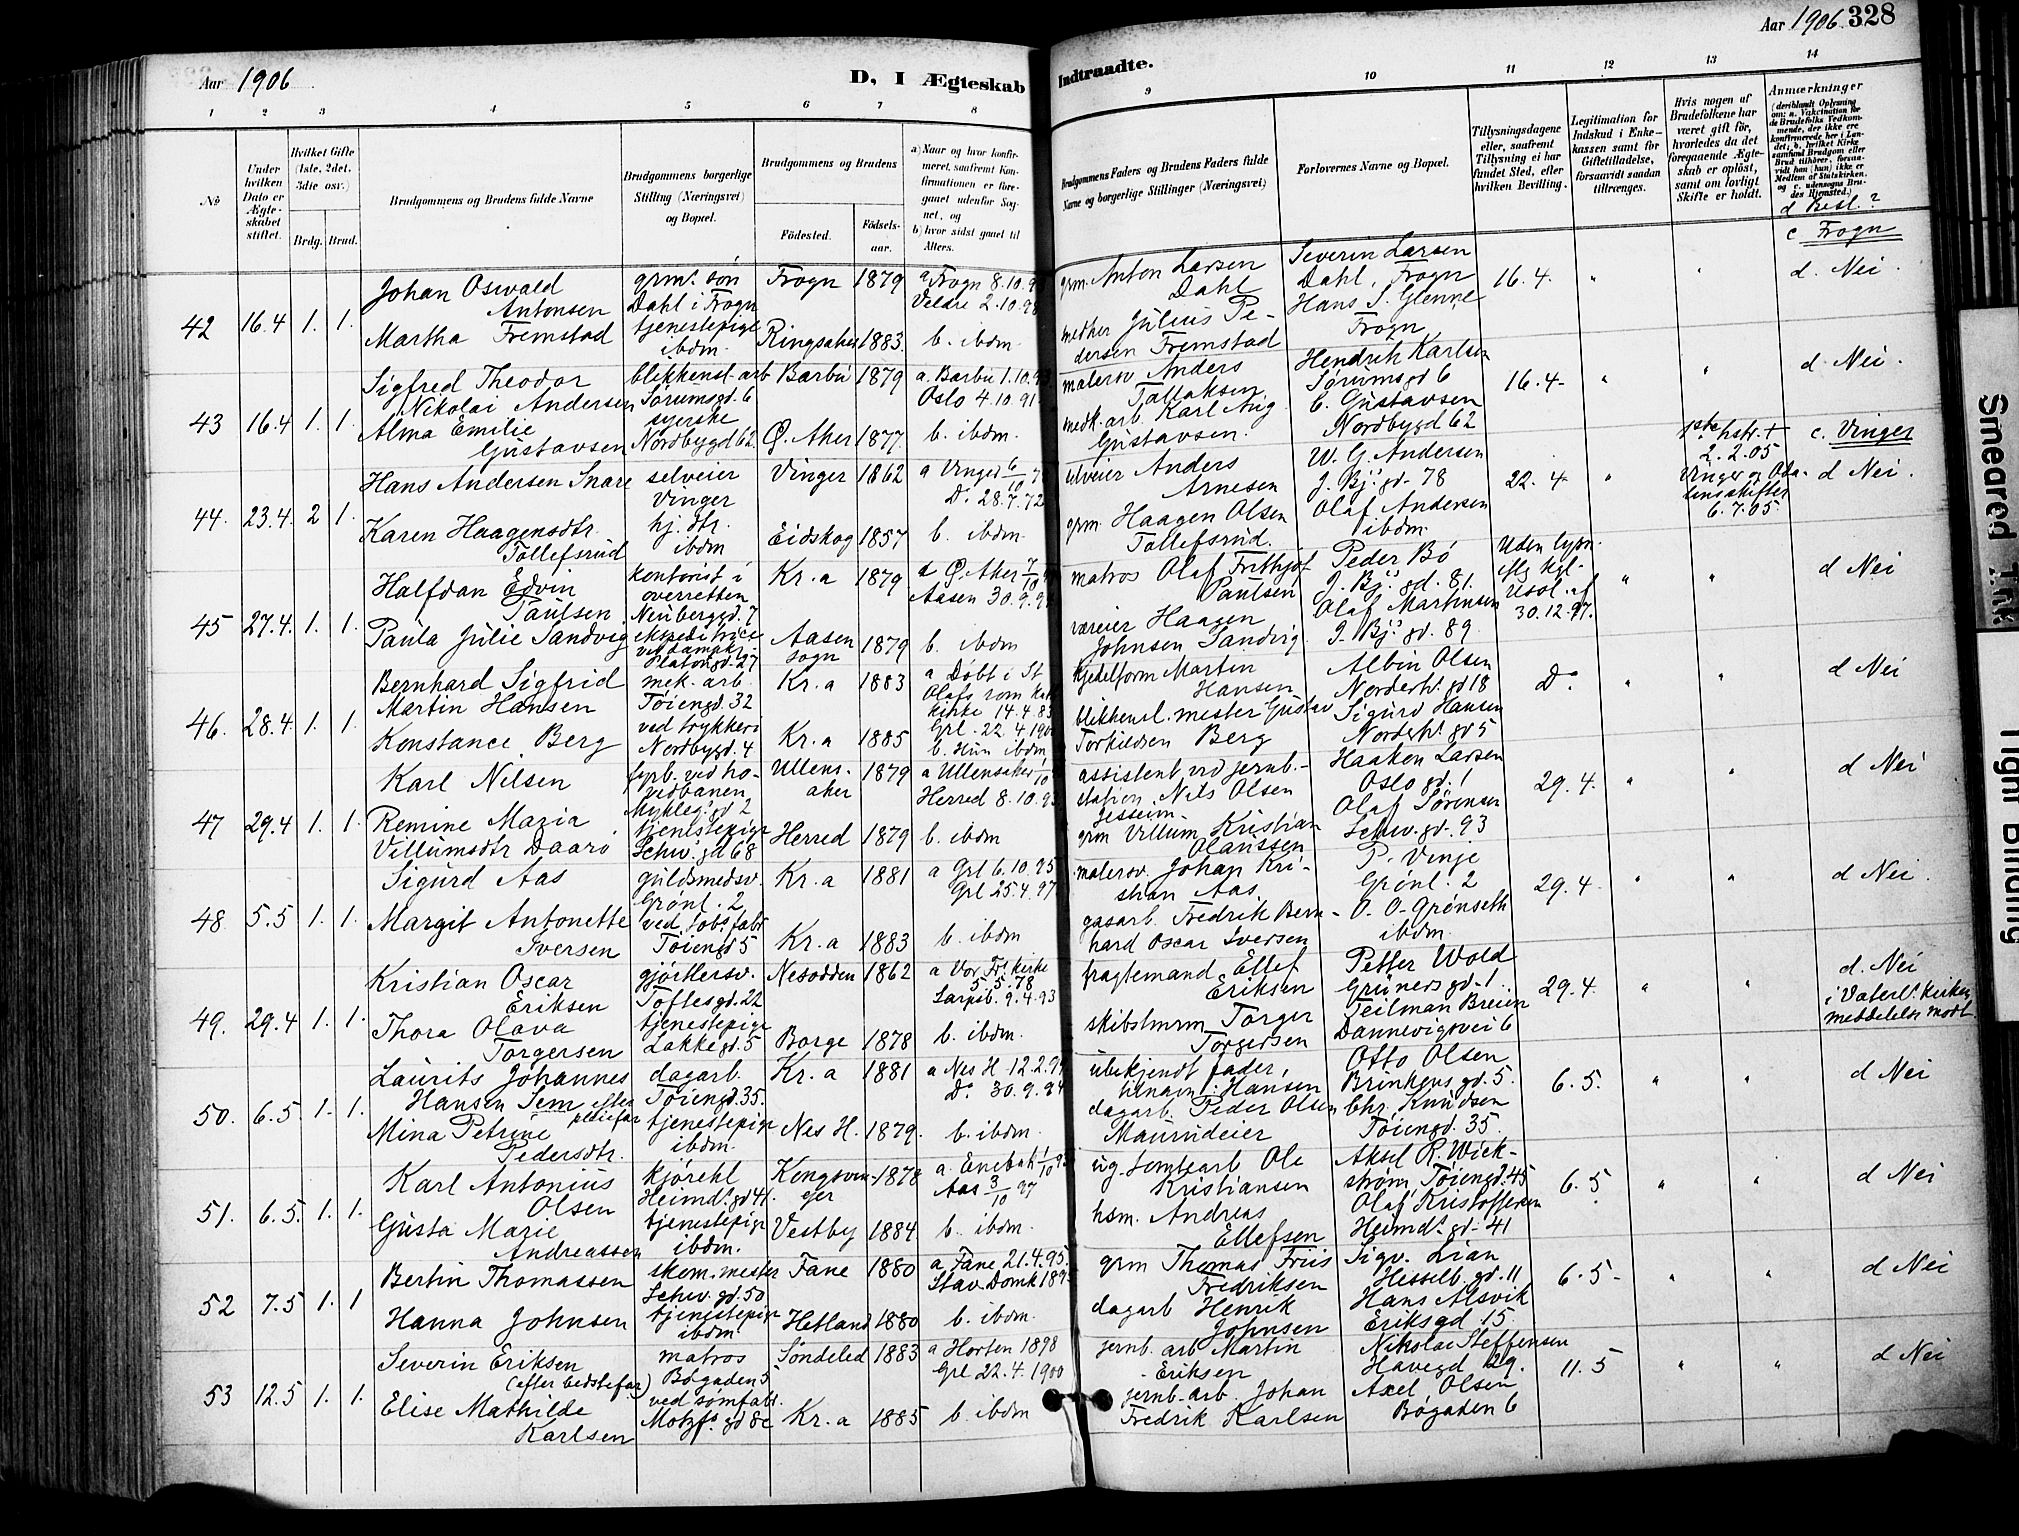 Aar 1906
D, I Ægteskab
Indtraadte.
Aar 1906. 328
1 2 3 4 5 6 7 8
9 10 11 12 13 14
No
Under hvilken Dato er Ægteskabet stiftet.
Hvilket Gifte (1ste, 2det, 3die osv.)
Brdg. Brud.
Brudgommens og Brudens fulde Navne
Brudgommens borgerlige Stilling (Næringsvei) og Bopæl.
Brudgommens og Brudens
Fødested.
Fødselsaar.
a) Naar og hvor konfirmeret, saafremt Konfirmationen er foregaaet udenfor Sognet, og
b) hvor sidst gaaet til Alters.
Brudgommens Faders og Brudens Faders fulde Navne og borgerlige Stillinger (Næringsvei)
Forlovernes Navne og Bopæl.
Tillysningsdagene eller, saafremt Tillysning ei har fundet Sted, efter hvilken Bevilling.
Legitimation for Indskud i Enkekassen samt for Giftetilladelse, forsaavidt saadan tiltrænges.
Hvis nogen af Brudefolkene har været gift før, hvorledes da det foregaaende Ægteskab er opløst, samt om lovligt Skifte er holdt.
Anmærkninger
d Besl.?
42 16.4 1. 1.
Johan Oswald Antonsen
grm. søn Dahl i Frogn
Frogn 1879
a Frogn 8.10.
Veldre 2.10.98
grm. Anton Larsen Dahl
Severin Larsen Dahl, Frogn
16.4.
c Frogn
d. Nei.
Martha Fremstad
tjenestepige ibdm.
Ringsaker 1883.
b. ibdm
Julius Pedersen Fremstad
Hans S. Glenne Frogn
43 16.4 1. 1.
Sigfred Theodor Nikolai Andersen
blikkensl. arb Sørumsgd. 6
Barbu 1879
a. Barbu 1.10.
Oslo 4.10.91
malersv Anders Tallaksen
Hendrik Karlsen Sørumsgd 6
16.4.
d. Nei.
Alma Emilie Gustavsen
syerske Nordbygd 62
Ø. Aker 1877.
b. ibdm.
medk. arb Karl Aug Gustavsen.
C. Gustavsen Nordbygd 62
44. 23.4. 2 1.
Hans Andersen Snare
selveier Vinger
Vinger 1862
a Vinger 6/10
Do. 28.7.72
selveier Anders Arnesen
W. G. Andersen J. Bj.s gd. 78
22.4
1ste hstr. † 2.2.05
Vinger og Odalens skifter 6.7.05.
c. Vinger
d Nei.
Karen Haagensdtr. Tollefsrud
hj. dtr. ibdm
Eidskog 1857
b. ibdm.
grm. Haagen Olsen Tollefsrud.
Olaf Andersen ibdm.
45 27.4. 1. 1.
Halfdan Edvin Paulsen
kontorist i overretten Neuberggd. 7
Kr.a 1879
a Ø. Aker 7/10
Aasen 30.9.
matros Olaf Frithjof Paulsen
Peder Bø J. Bj.s gd. 81.
Uden lysn. flg kgl. Resol. af 30.12.97.
d Nei
Paula Julie Sandvig
ekspeditrice ved dampkj. Platougd. 27
Aasen sogn 1879
b. ibdm
væreier Haagen Johnsen Sandvig
Olaf Martinsen J. Bj.s gd. 89
46. 28.4. 1. 1.
Bernhard Sigfrid Martin Hansen
mek. arb. Tøiengd. 32
Kr.a 1883
a Døbt i St Olafs rom kat kirke 14.4.83
Grl. 22.4.1900
kjedelform Martin Hansen
Albin Olsen Norderh.s gd 18
Do.
d Nei
Konstance Berg
ved trykkeri Nordbygd. 4
Kr.a 1885
b. Hun ibdm
blikkensl. mester Gustav Torkildsen Berg
Sigurd Hansen Norderh. gd 5
47 29.4 1. 1.
Karl Nilsen
fyrb. ved hovedbanen Mykleg.s gd 2
Ullensaker 1879
a Ullensaker 1/10
Herred 8.10.93
assistent ved jernb.station Nils Olsen Jessem
Haaken Larsen Oslo gd. 1
29.4.
d Nei
Remine Maria Villumsdtr Daarø
tjenestepige Schw.s gd 68
Herred 1879
b. ibdm
grm Villum Kristian Olaussen
Olaf Sørensen Schw. gd. 93
48 5.5 1. 1.
Sigurd Aas
guldsmedsv. Grønl. 2
Kr.a 1881
a Grl 6.10.95
Grl 25.4.97
malersv. Johan Kristian Aas
P. Vinje Grønl. 2
29.4.
d Nei.
Margit Antonette Iversen
ved tob. fabr Tøiengd 5
Kr.a 1883
b. ibdm
gasarb. Fredrik Bernhard Oscar Iversen
O. O. Grønseth ibdm.
49. 29.4 1. 1.
Kristian Oscar Eriksen
gjørtlersv. Toftesgd. 22
Nesodden 1862
a Vor Frs. kirke 5.5.78
Sarpsb. 9.4.93
fragtemand Ellef Eriksen
Petter Wold Grüners gd. 1
29.4.
d. Nei
i Vaterl.s kirken meddelelse modt.
Thora Olava Torgersen
tjenestepige Lakkegd. 5
Borge 1878
b. ibdm.
skibstmrm Torger Torgersen
Teilman Breien Dannevigsvei 6
50. 6.5. 1. 1.
Laurits Johannes Hansen Tem efter pleiefar
dagarb. Tøiengd. 35.
Kr.a 1881
a Nes H 12.2.
Do. 30.9.94
ubekjendt fader, tilnavn: Hansen
Otto Olsen Brinkens gd. 5.
6.5.
d Nei
Mina Petrine Pedersdtr.
tjenestepige ibdm.
Nes H. 1879.
b. ibdm.
dagarb. Peder Olsen Maurudeier
Chr. Knudsen Tøiengd. 35.
51. 6.5. 1. 1.
Karl Antonius Olsen
kjørekl Heimd.s gd 41.
Kongsvinger 1878
a. Enebak 1/10
Aas 3/10 97
ug. tomtearb Ole Kristiansen
Aksel R. Wickstrøm, Tøiengd. 45
6.5
d Nei
Gusta Marie Andreassen
tjenestepige ibdm.
Vestby 1884
b. ibdm.
hsm. Andreas Ellefsen
Olaf Kristoffersen Heimd.s gd. 41
52 7.5 1. 1
Bertin Thomassen
skom. mester Schw. gd. 50
Fane 1880
a. Fane 21.4.95.
Stav. Domk 189
grm Thomas Friis Fredriksen
Sigv. Lian Hesselb. gd. 11
6.5.
d Nei
Hanna Johnsen
tjenestepige ibdm
Hetland 1880
b. ibdm.
dagarb Henrik Johnsen
Hans Alsvik Eriksgd 15.
53 12.5 1. 1.
Severin Eriksen (efter bedstefar)
matros Bøgaden 5
Søndeled 1883
a Horten 1898
Grl 22.4.1900
jernb. arb Martin Eriksen
Nikolai Steffensen Havegd 29.
11.5
d Nei
Elise Mathilde Karlsen
ved sømfabr. Motzf.s gd 8c
Kr.a 1885
b. ibdm
jernb. arb. Johan Fredrik Karlsen
Axel Olsen Bøgaden 6
Smeared Ink
Tight Binding